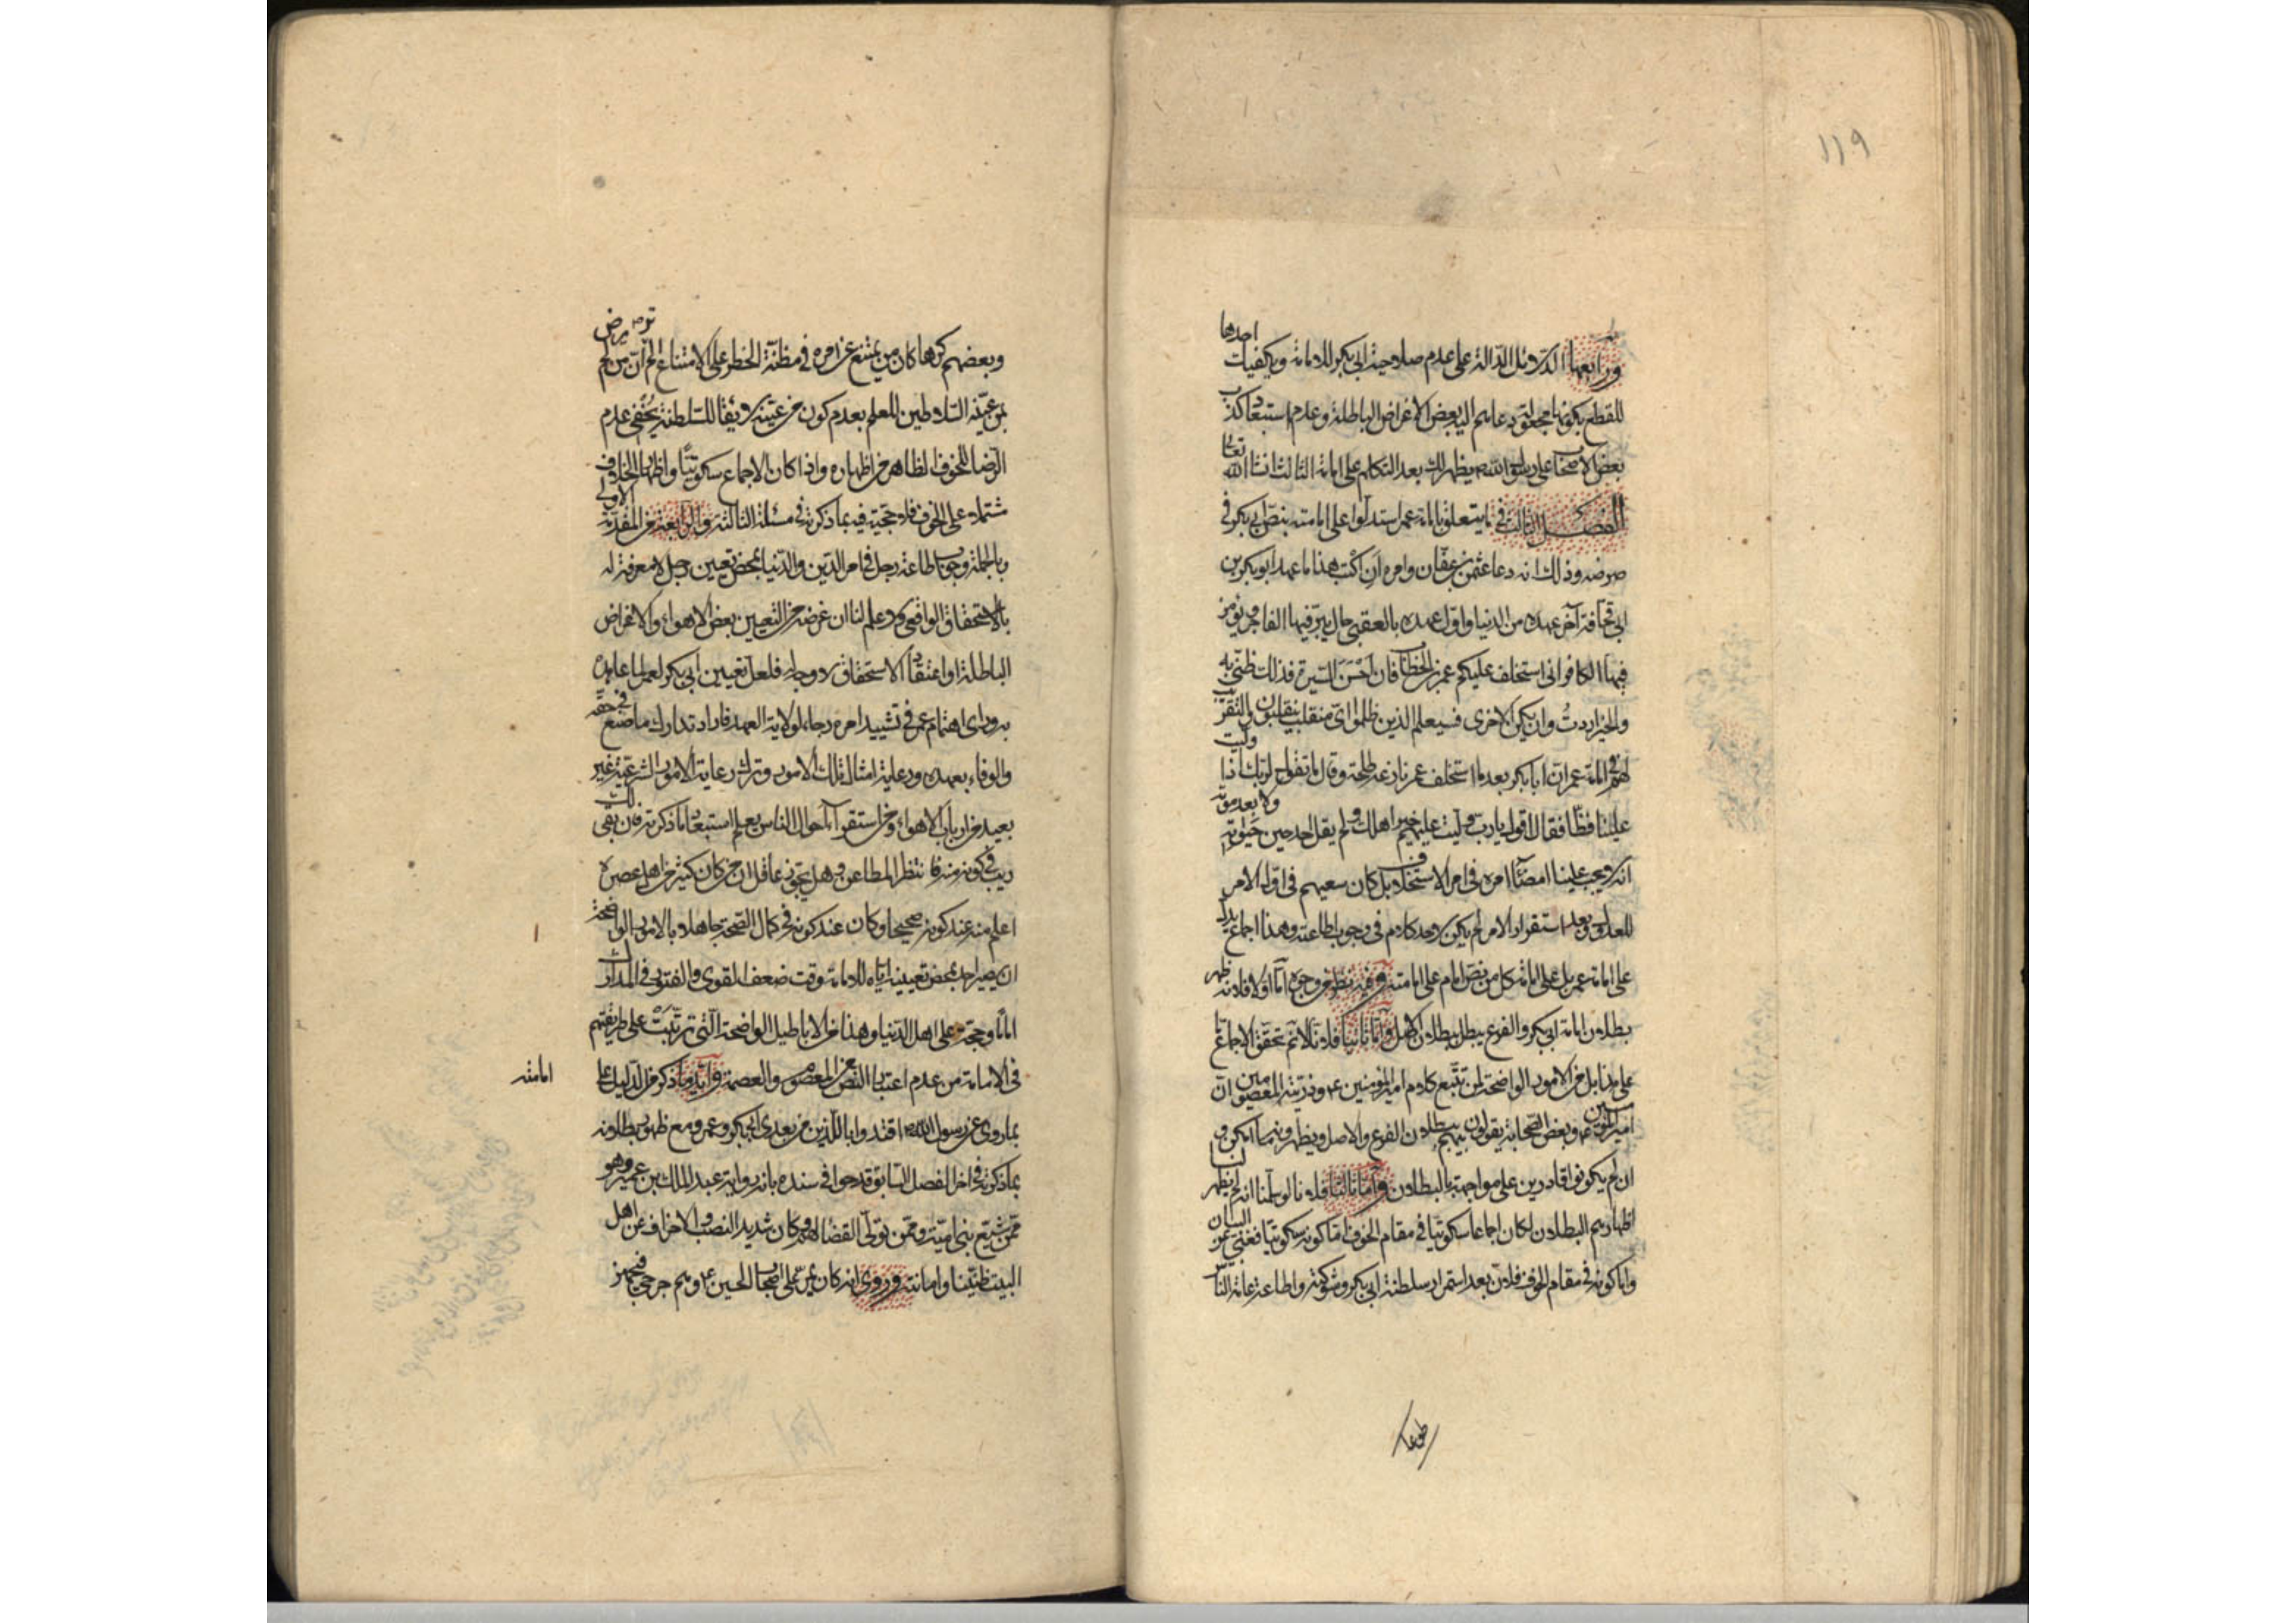 ١١٩
احدها
ورابعها الدلائل الدالة على عدم صلاحية ابي بكر للامامة ويكفيك
للقطع بكونها مجعولة دعاهم اليه بعض الاغراض الباطلة وعدم استبعاد كذب
بعض الاصحاب على رسول الله ص يظهر لك بعد التكلم على امامة الثالث انشا الله تعالى
الفصل الثالث في ما يتعلق بامامة عمر استدلوا على امامته بنص ابي بكر في
مرضه وذلك انه دعا عثمن بن عفان وامره ان اكتب هذا ما عهد ابو بكر بن
ابي قحافة آخر عهده من الدنيا واول عهده بالعقبى حال يبر فيها الفاجر ويؤمن
فيها الكافر اني استخلف عليكم عمر بن الخطاب فان احسن السيرة فذلك ظني به
والخير اردت وان يكن الاخرى فسيعلم الذين ظلموا اي منقلب ينقلبون
امامة عمر ان ابا بكر بعد ما استخلف عمر نازعه طلحة وقال ما تقول لربك اذا وليت
علينا فظا فقال اقول يا رب وليت عليهم خير اهلك ولم يقل احد حين حيوته ولا بعد موته
انه لا يجب علينا امضاء امره في امر الاستخلاف بل كان سعيهم في اول الامر
للعدول وبعد استقرار الامر لم يكن لاحد كلام في وجوب اطاعته وهذا اجماع يدل
على امامة عمر بل على امامة كل من نص امام على امامته وفيه نظر من وجوه اما اولا فلانه ظهر
بطلان امامة ابي بكر والفرع يبطل ببطلان الاصل واما ثانيا فلانا لا نم تحقق الاجماع
على هذا بل من الامور الواضحة لمن تتبع كلام امير المؤمنين ع وذريته المعصومين ان
امير المؤمنين ع وبعض الصحابة يقولون بينهم ببطلان الفرع والاصل ويظهرونهما امكن و
ان لم يكونوا قادرين على مواجهته بالبطلان واما ثالثا فلانا لو سلمنا انه لم يظهر لنا
اظهارهم البطلان لكان اجماعا سكوتيا في مقام الخوف اما كونه سكوتيا فغني عن البيان
واما كونه في مقام الخوف فلان بعد استمرار سلطنة ابي بكر وشوكته واطاعة عامة الناس
وبعضهم كرها كان من يمتنع عن امره في مظنة الخطر على الامتناع الا ان من لم
عينه السلاطين للعلم بعدم كون من عينه لايقا للسلطنة يخفى عدم
الرضا للخوف الظاهر من اظهاره واذا كان الاجماع سكوتيا واظهار الخلاف
مشتملا على الخوف فلا حجية فيه بما ذكرته في مسئلة الثالثة والرابعة من المقدمة الاولى
وبالجملة وجوب اطاعة رجل في امر الدين والدنيا بمحض تعيين رجل لا معرفة له
بالاستحقاق الواقعي ولا علم لنا ان غرضه من التعيين بعض الاهواء والاغراض
الباطلة او اعتقاد الاستحقاق لا وجه له فلعل تعيين ابي بكر لعمر لما عاهده
به وراى اهتمام عمر في تشييد امره رجاء لولاية العهد فاراد تدارك ما صنع في حقه
والوفاء بعهده ورعاية امثال تلك الامور وترك رعاية الامور الشرعية غير
بعيد من ارباب الاهواء ومن استقراء احوال الناس يعلم استبعاد ما ذكرته فان بقى لك
ريب في كونه منه فانتظر المطاعن وهل يجوز عاقل ان من كان كثير من اهل عصره
اعلم منه عند كونه صحيحا وكان عند كونه في كمال الصحة جاهلا بالامور الواضحة
ان يصير احد بمحض تعيينه اياه للامامة وقت ضعف القوى والفتور في المدارك
اماما وحجة على اهل الدنيا وهذا من الاباطيل الواضحة التي ترتبت على طريقتهم
في الامامة من عدم اعتبار النص عن المعصوم والعصمة وايد وما ذكر من الدليل على
امامته
بما روي عن رسول الله ص اقتدوا باللذين من بعدي ابي بكر وعمر ومع ظهور بطلانه
بما ذكرته في اخر الفصل السابق قدحوا في سنده بانه رواية عبد الملك بن عمير وهو
ممن شيع بني امية وممن تولى القضا لهم وكان شديد النصب والانحراف عن اهل
البيت ظنينا وامانته وروي انه كان يمر على اصحاب الحسين ع وهم جرحى فيجهز